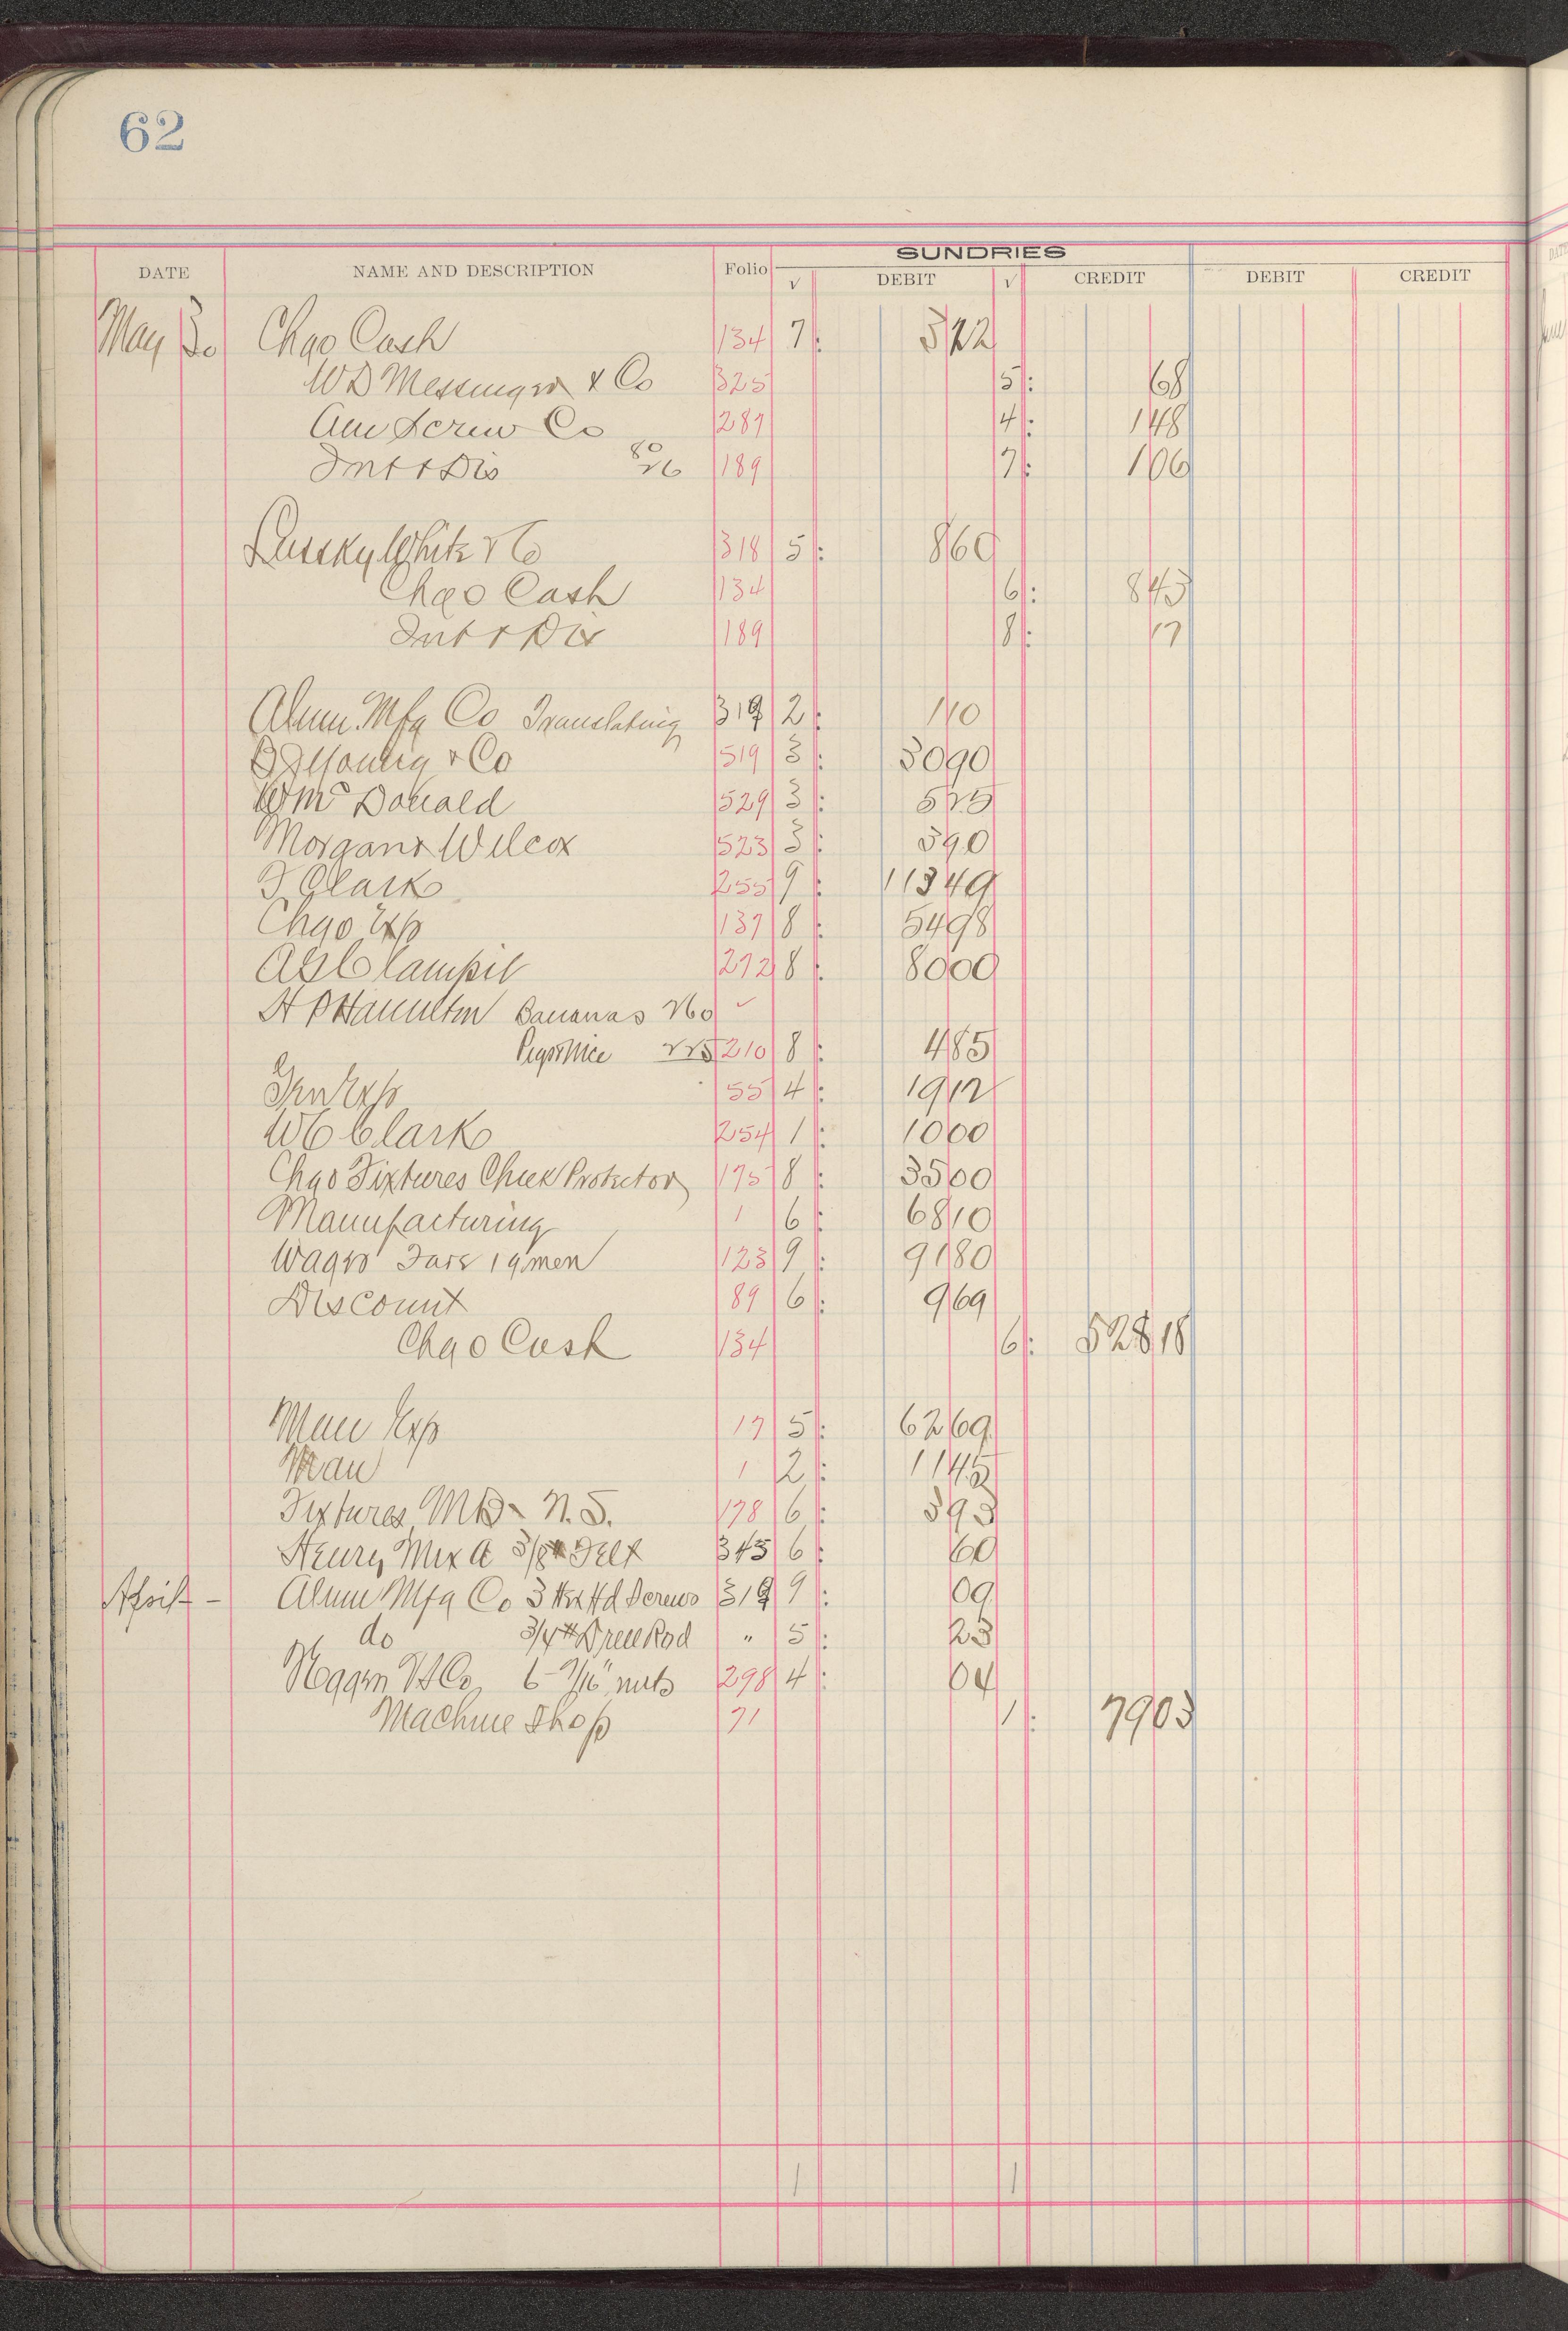 62
SUNDRIES
DATE NAME AND DESCRIPTION Folio √ DEBIT √ CREDIT DEBIT CREDIT
May 30 Chgo Cash 134 7 : 3 22
WD Messinger & Co 325 5 : 68
Am Screw Co 287 4 : 148
Int & Dis 80 26 189 7 : 106
Lussky White & Co 318 5 : 860
Chgo Cash 134 6 : 843
Int & Dis 189 8 : 17
Alum. Mfg Co Translating 319 2 : 110
Young & Co 519 3 : 3090
W Mc Donald 529 3 : 525
Morgan & Wilcox 523 3 : 390
F Clark 255 9 : 11349
Chgo Exp 137 8 : 5498
272 8 : 8000
H P Hamilton Bananas 260 ✓
Pigs & Mice 225 210 8 : 485
Gen Exp 55 4 : 1912
W C Clark 254 1 : 1000
Chgo Fixtures Check Protector 175 8 : 3500
Manufacturing 1 6 : 6810
Wages 19 men 123 9 : 9180
Discount 89 6 : 969
Chgo Cash 134 6 : 52818
Man Exp 17 5 : 6269
Man 1 2 : 1145
Fixtures N. S. 178 6 : 393
Henry Mix & 3/8# Felt 343 6 : 60
April - Alum Mfg Co 3 Hex Hd Screws 319 9 : 09
do 3/4# Drill Rod " 5 : 23
Co 6 - 7/16" nuts 298 4 : 04
Machine Shop 71 1 : 7903
1 1